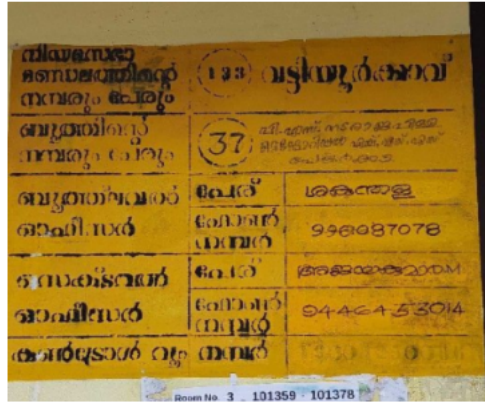 നിയമസഭാ
മണ്ഡലത്തിന്റെ
നമ്പരും പേരും
133 വട്ടിയൂർക്കാവ്
ബൂത്തിന്റെ
നമ്പരും പേരും
37
ബൂത്ത്ലവൽ
ഓഫീസർ
പേര് ശകുന്തള
ഫോൺ
നമ്പർ
996087078
സെക്ടറൽ
ഓഫീസർ
പേര് അജയകുമാർ.M
ഫോൺ
നമ്പർ
9446453014
കൺട്രോൾ റൂം നമ്പർ
Room No. 3 101359 - 101378